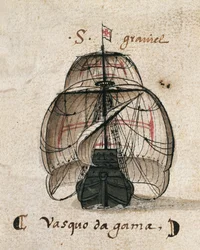 .S. graviee
Vasquo da gama.